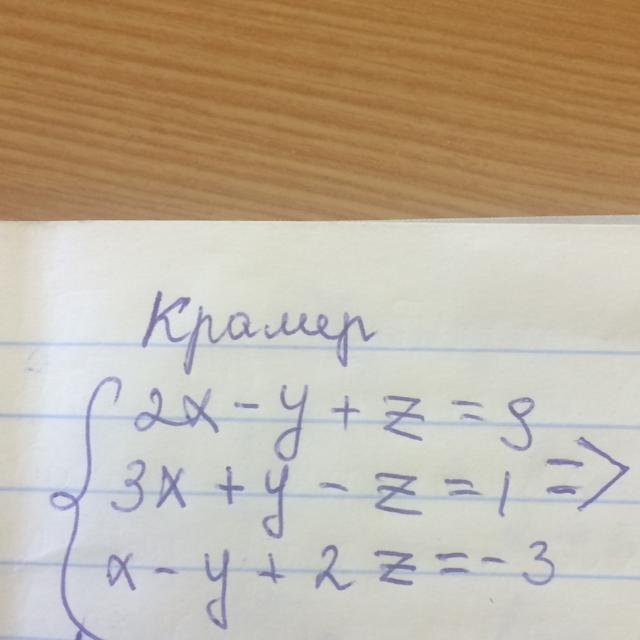 Крамер
2x - y + z = 9
3x + y - z = 1 =>
x - y + 2z = -3